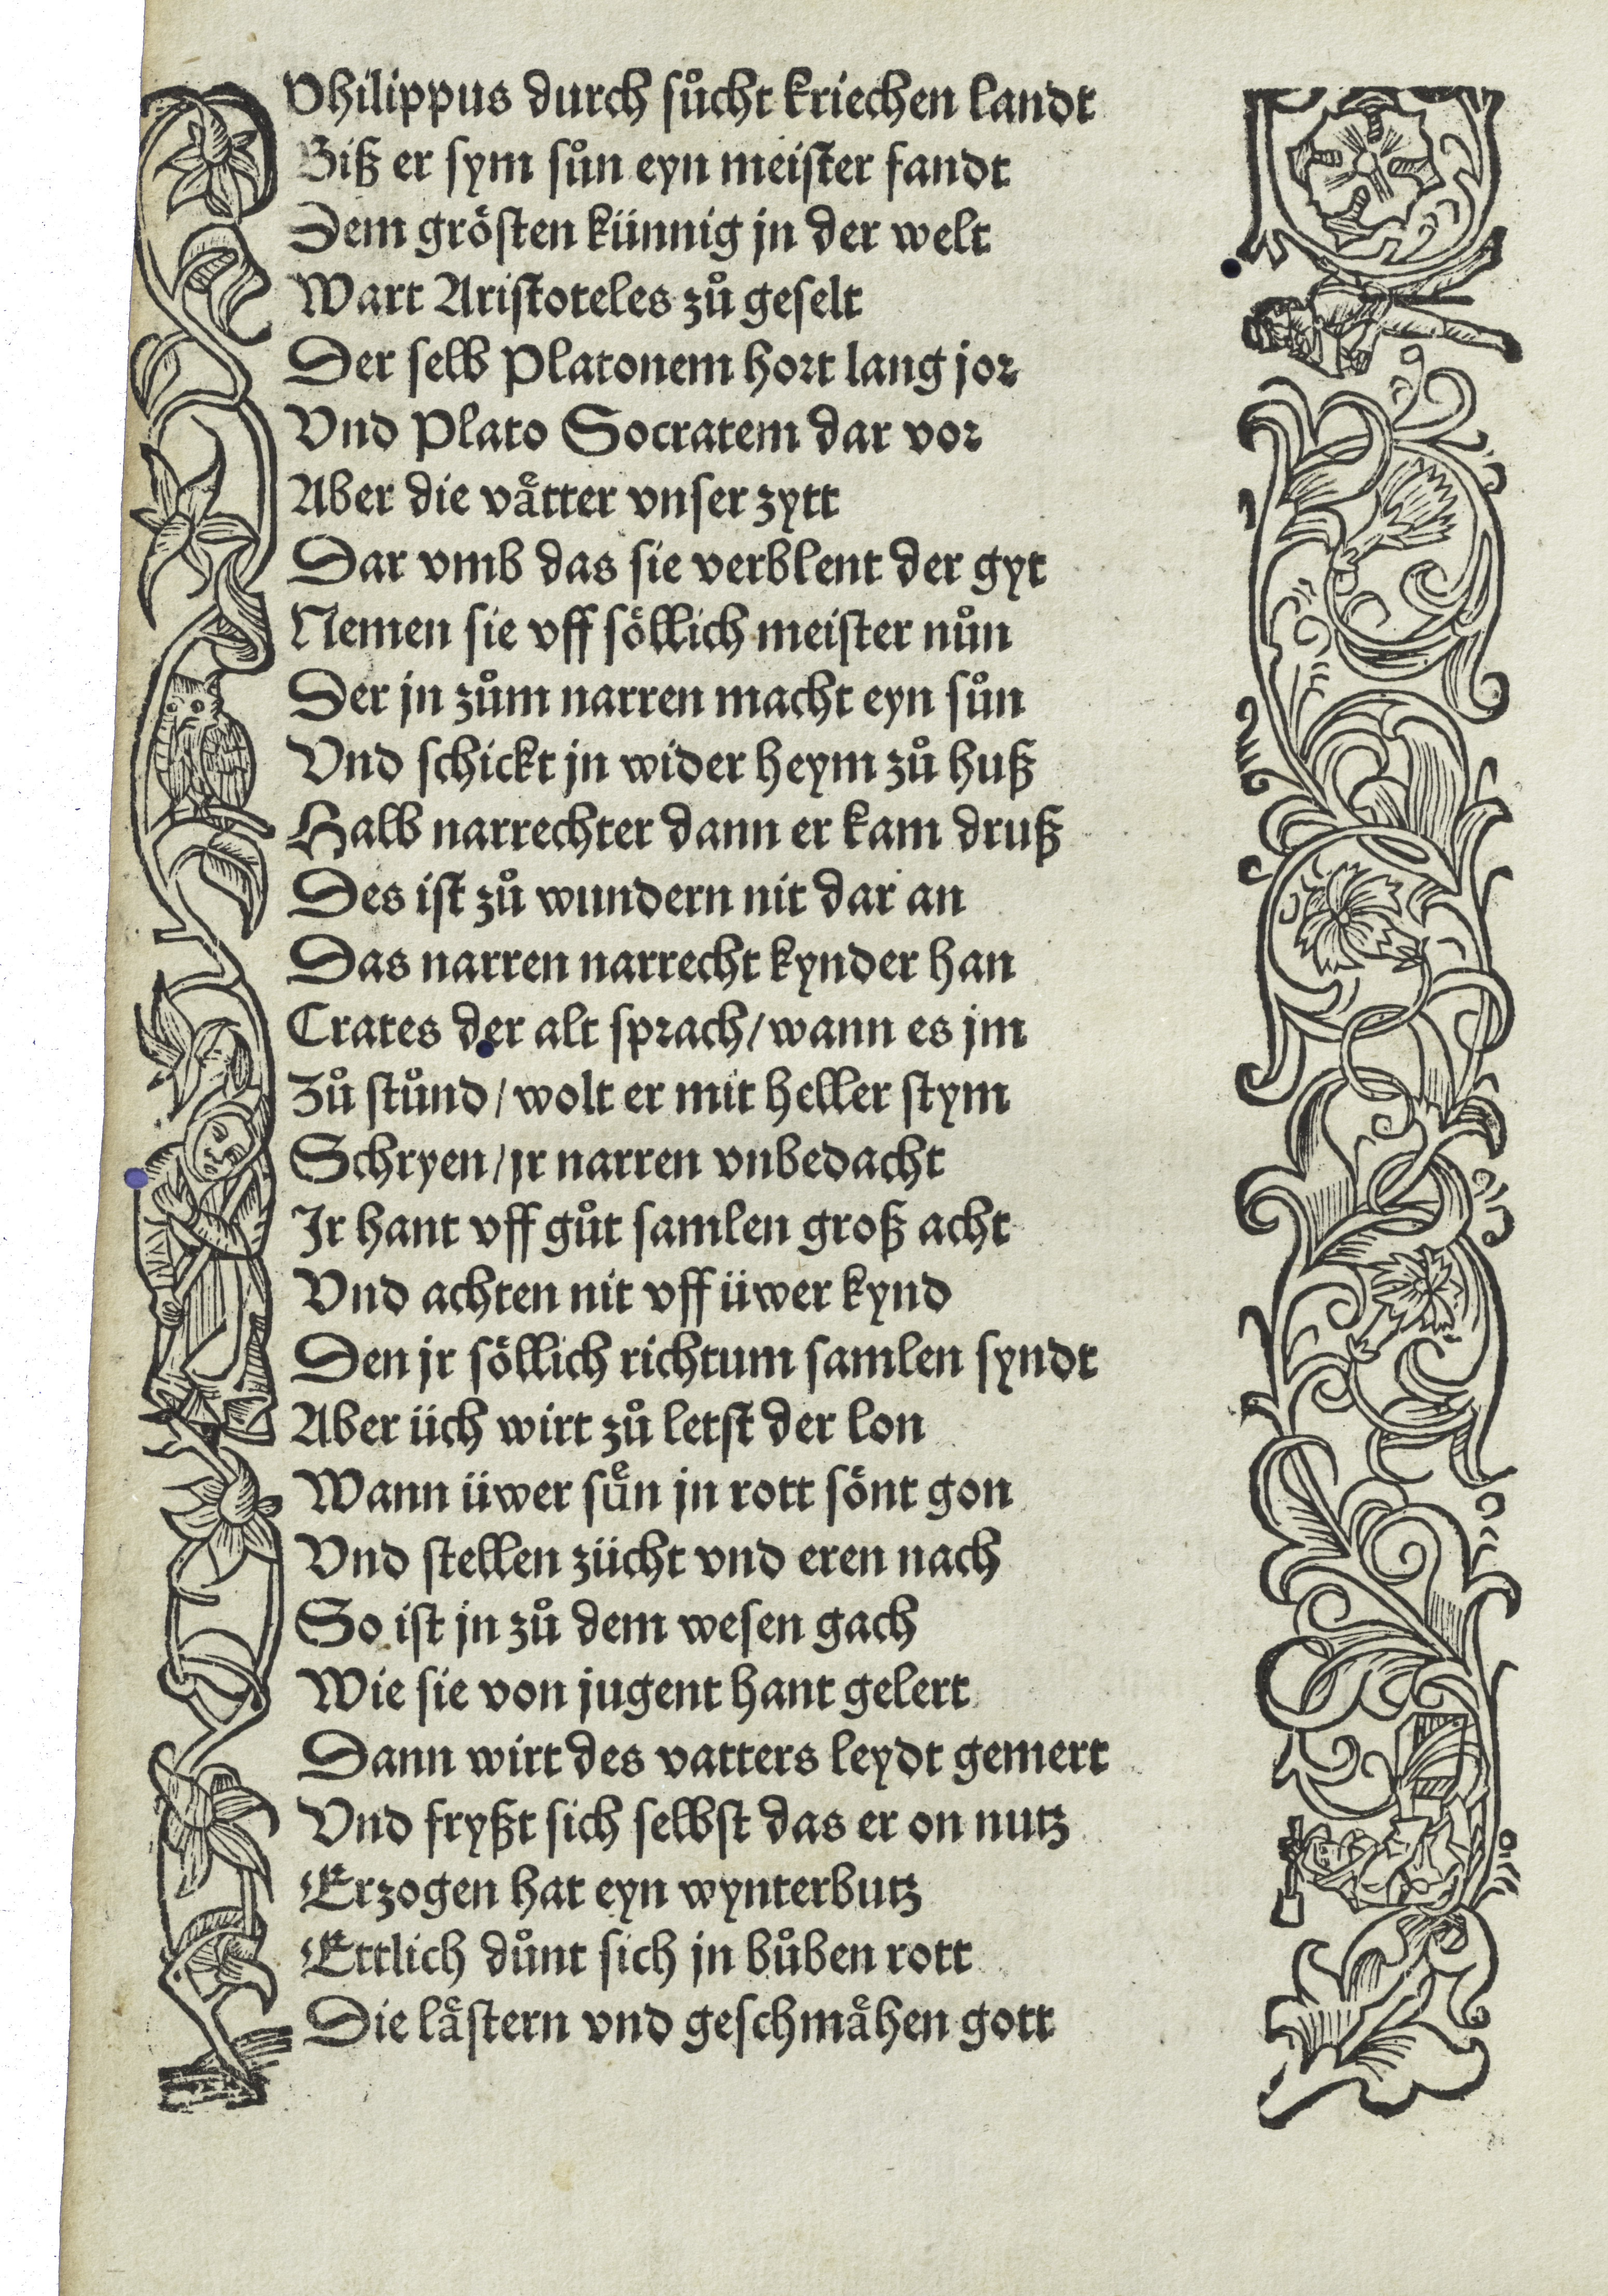 Philippus durch sůcht kriechen landt
Biß er sym sůn eyn meister fandt
Dem grösten künnig jn der welt
Wart Aristoteles zů geselt
Der selb Platonem hort lang jor
Vnd Plato Socratem dar vor
Aber die vaͤtter vnser zytt
Dar vmb das sie verblent der gyt
Nemen sie vff söllich meister nůn
Der jn zům narren macht eyn sůn
Vnd schickt jn wider heym zů huß
Halb narrechter dann er kam druß
Des ist zů wundern nit dar an
Das narren narrecht kynder han
Crates der alt sprach/ wann es jm
Zů stůnd/ wolt er mit heller stym
Schryen/ jr narren vnbedacht
Ir hant vff gůt samlen groß acht
Vnd achten nit vff üwer kynd
Den jr söllich richtum samlen syndt
Aber üch wirt zů letst der lon
Wann üwer suͤn jn rott sönt gon
Vnd stellen zücht vnd eren nach
So ist jn zů dem wesen gach
Wie sie von jugent hant gelert
Dann wirt des vatters leydt gemert
Vnd fryßt sich selbst das er on nutz
Erzogen hat eyn wynterbutz
Ettlich důnt sich jn bůben rott
Die laͤstern vnd geschmaͤhen gott